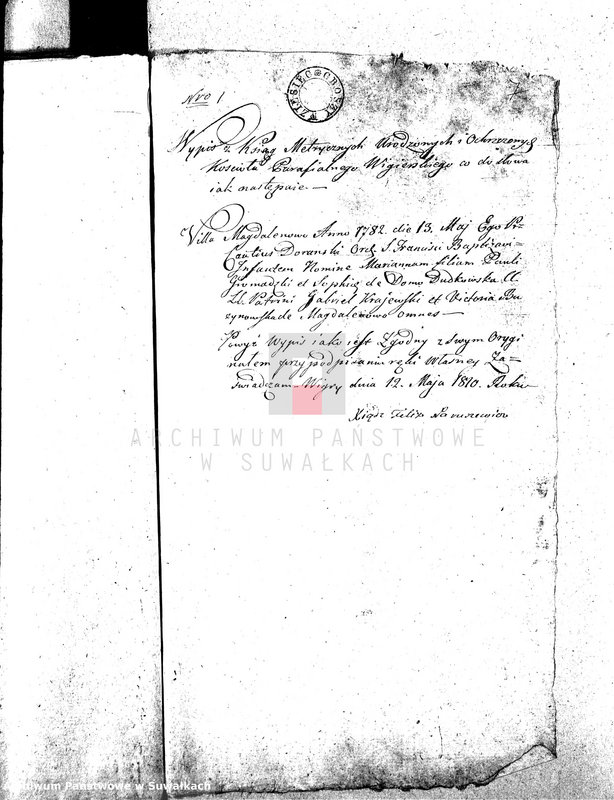 Nro 1
DZIESIĘC GROSZY
Wypis z Ksiąg Metrycznych Urodzonych i Ochrzczonych
Kościoła Parafialnego Wigierskiego co do słowa
iak następuie. —
Villa Magdalenowo Anno 1782. die 13. Maj Ego Fr
Cantius Doranski Ord. S. Francisci Baptizavi
Infantem Nomine Mariannam filiam Pauli
Gromadzki et Sophiæ de Domo Dudkowska C.
LL. Patrini Gabriel Krajewski et Victoria Bu
zynowska de Magdalenowo omnes —
Powyż Wypis iako iest Zgodny z swym Orygi
nałem przy podpisaniu ręki własney Za=
świadczam Wigry dnia 12. Maja 1810. Roku
Xiądz Felix
ARCHIWUM PAŃSTWOWE
W SUWAŁKACH
Archiwum Państwowe w Suwałkach